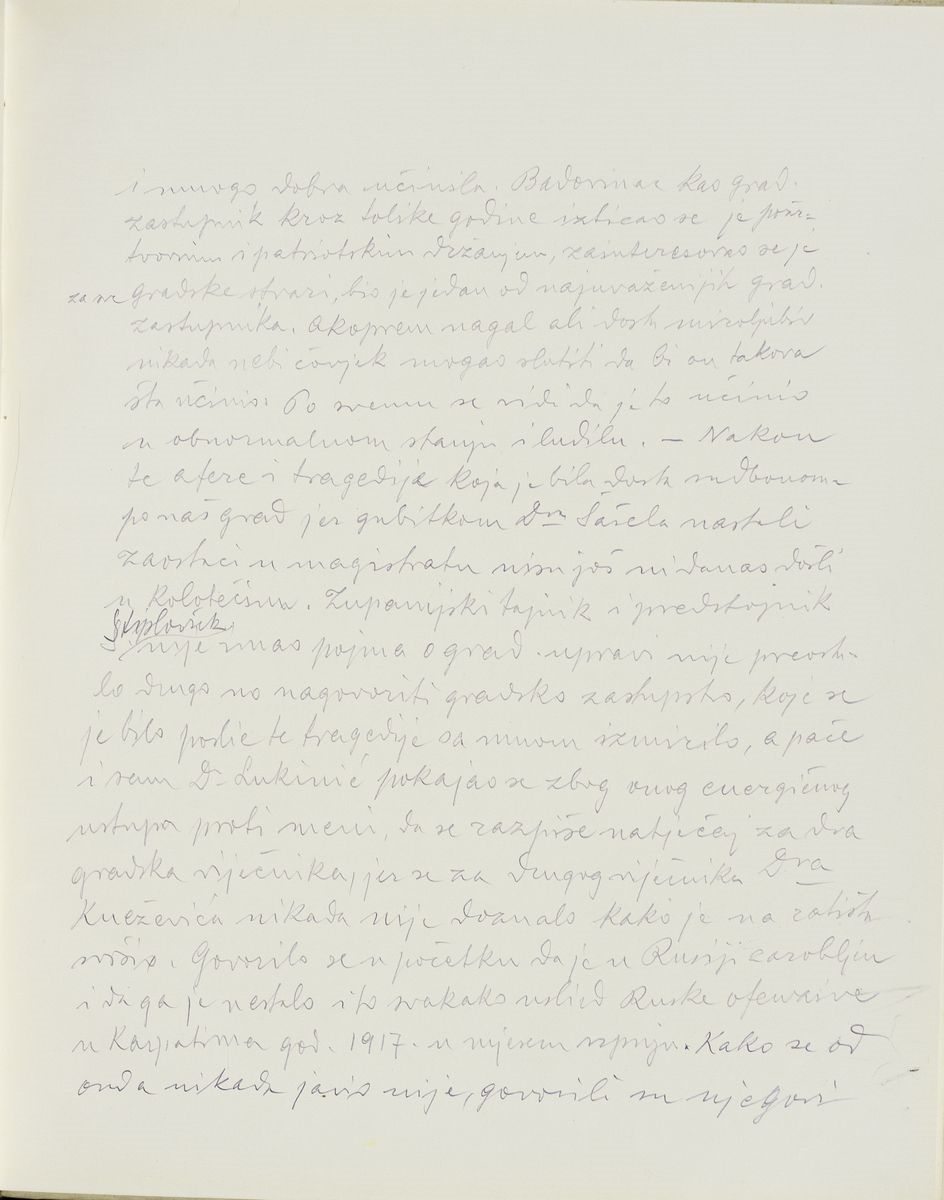 i mnogo dobra učinila. Badovinac kao grad.
zastupnik kroz tolike godine izticao se je požr=
tvovnim i patriotskim držanjem, zainteresovao se je
za sve gradske stvari, bio je jedan od najuvaženijih grad.
zastupnika. Akoprem nagal ali dosta miroljubiv
nikada nebi čovjek mogao slutiti da bi on takova
šta učinio. Po svemu se vidi da je to učinio
u obnormalnom stanju i ludilu. — Nakon
te afere i tragedije koja je bila dosta sudbonom=
po naš grad jer gubitkom Dra Šašela nastali
zaostaci u magistratu nisu još ni danas došli
u kolotečinu. Županijski tajnik i predstojnik
Stiplošek
nije imao pojma o grad. upravi nije preosta-
lo drugo no nagovoriti gradsko zastupstvo, koje se
je bilo poslie te tragedije sa mnom izmirilo, a pače
i sam Dr Lukinić pokajao se zbog onog energičnog
ustupa proti meni, da se razpiše natječaj za dva
gradska viječnika, jer se za drugog viječnika Dra
Kneževića nikada nije doznalo kako je na ratištu
svršio. Govorilo se u početku da je u Rusiji zarobljen
i da ga je nestalo i to svakako uslied Ruske ofenzive
u Karpatima god. 1917. u mjesecu srpnju. Kako se od
onda nikada javio nije, govorili su njegovi